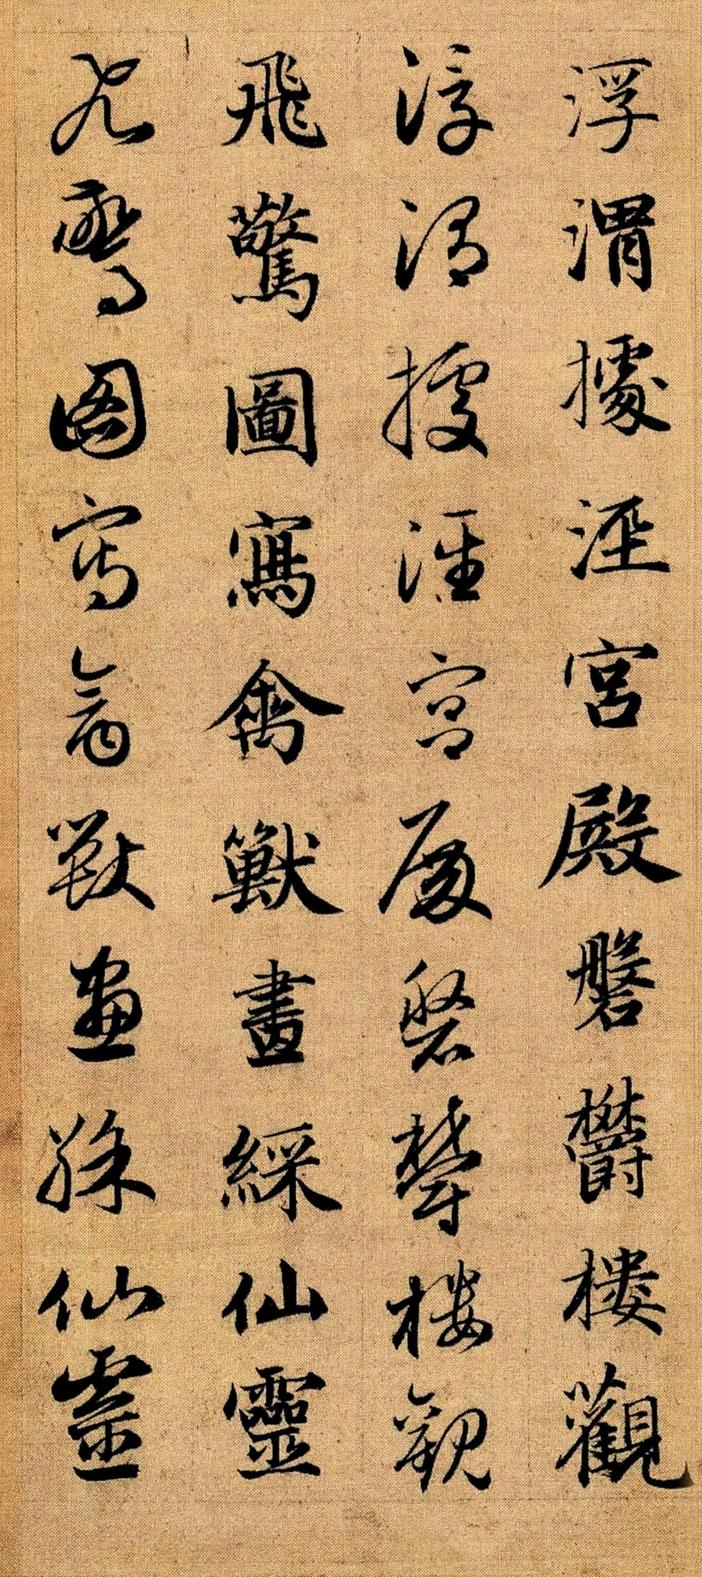 浮渭據涇宮殿磐欝樓觀
浮渭據涇宮殿磐欝樓觀
飛驚圖寫禽獸畫綵仙靈
飛驚圖寫禽獸畫綵仙靈